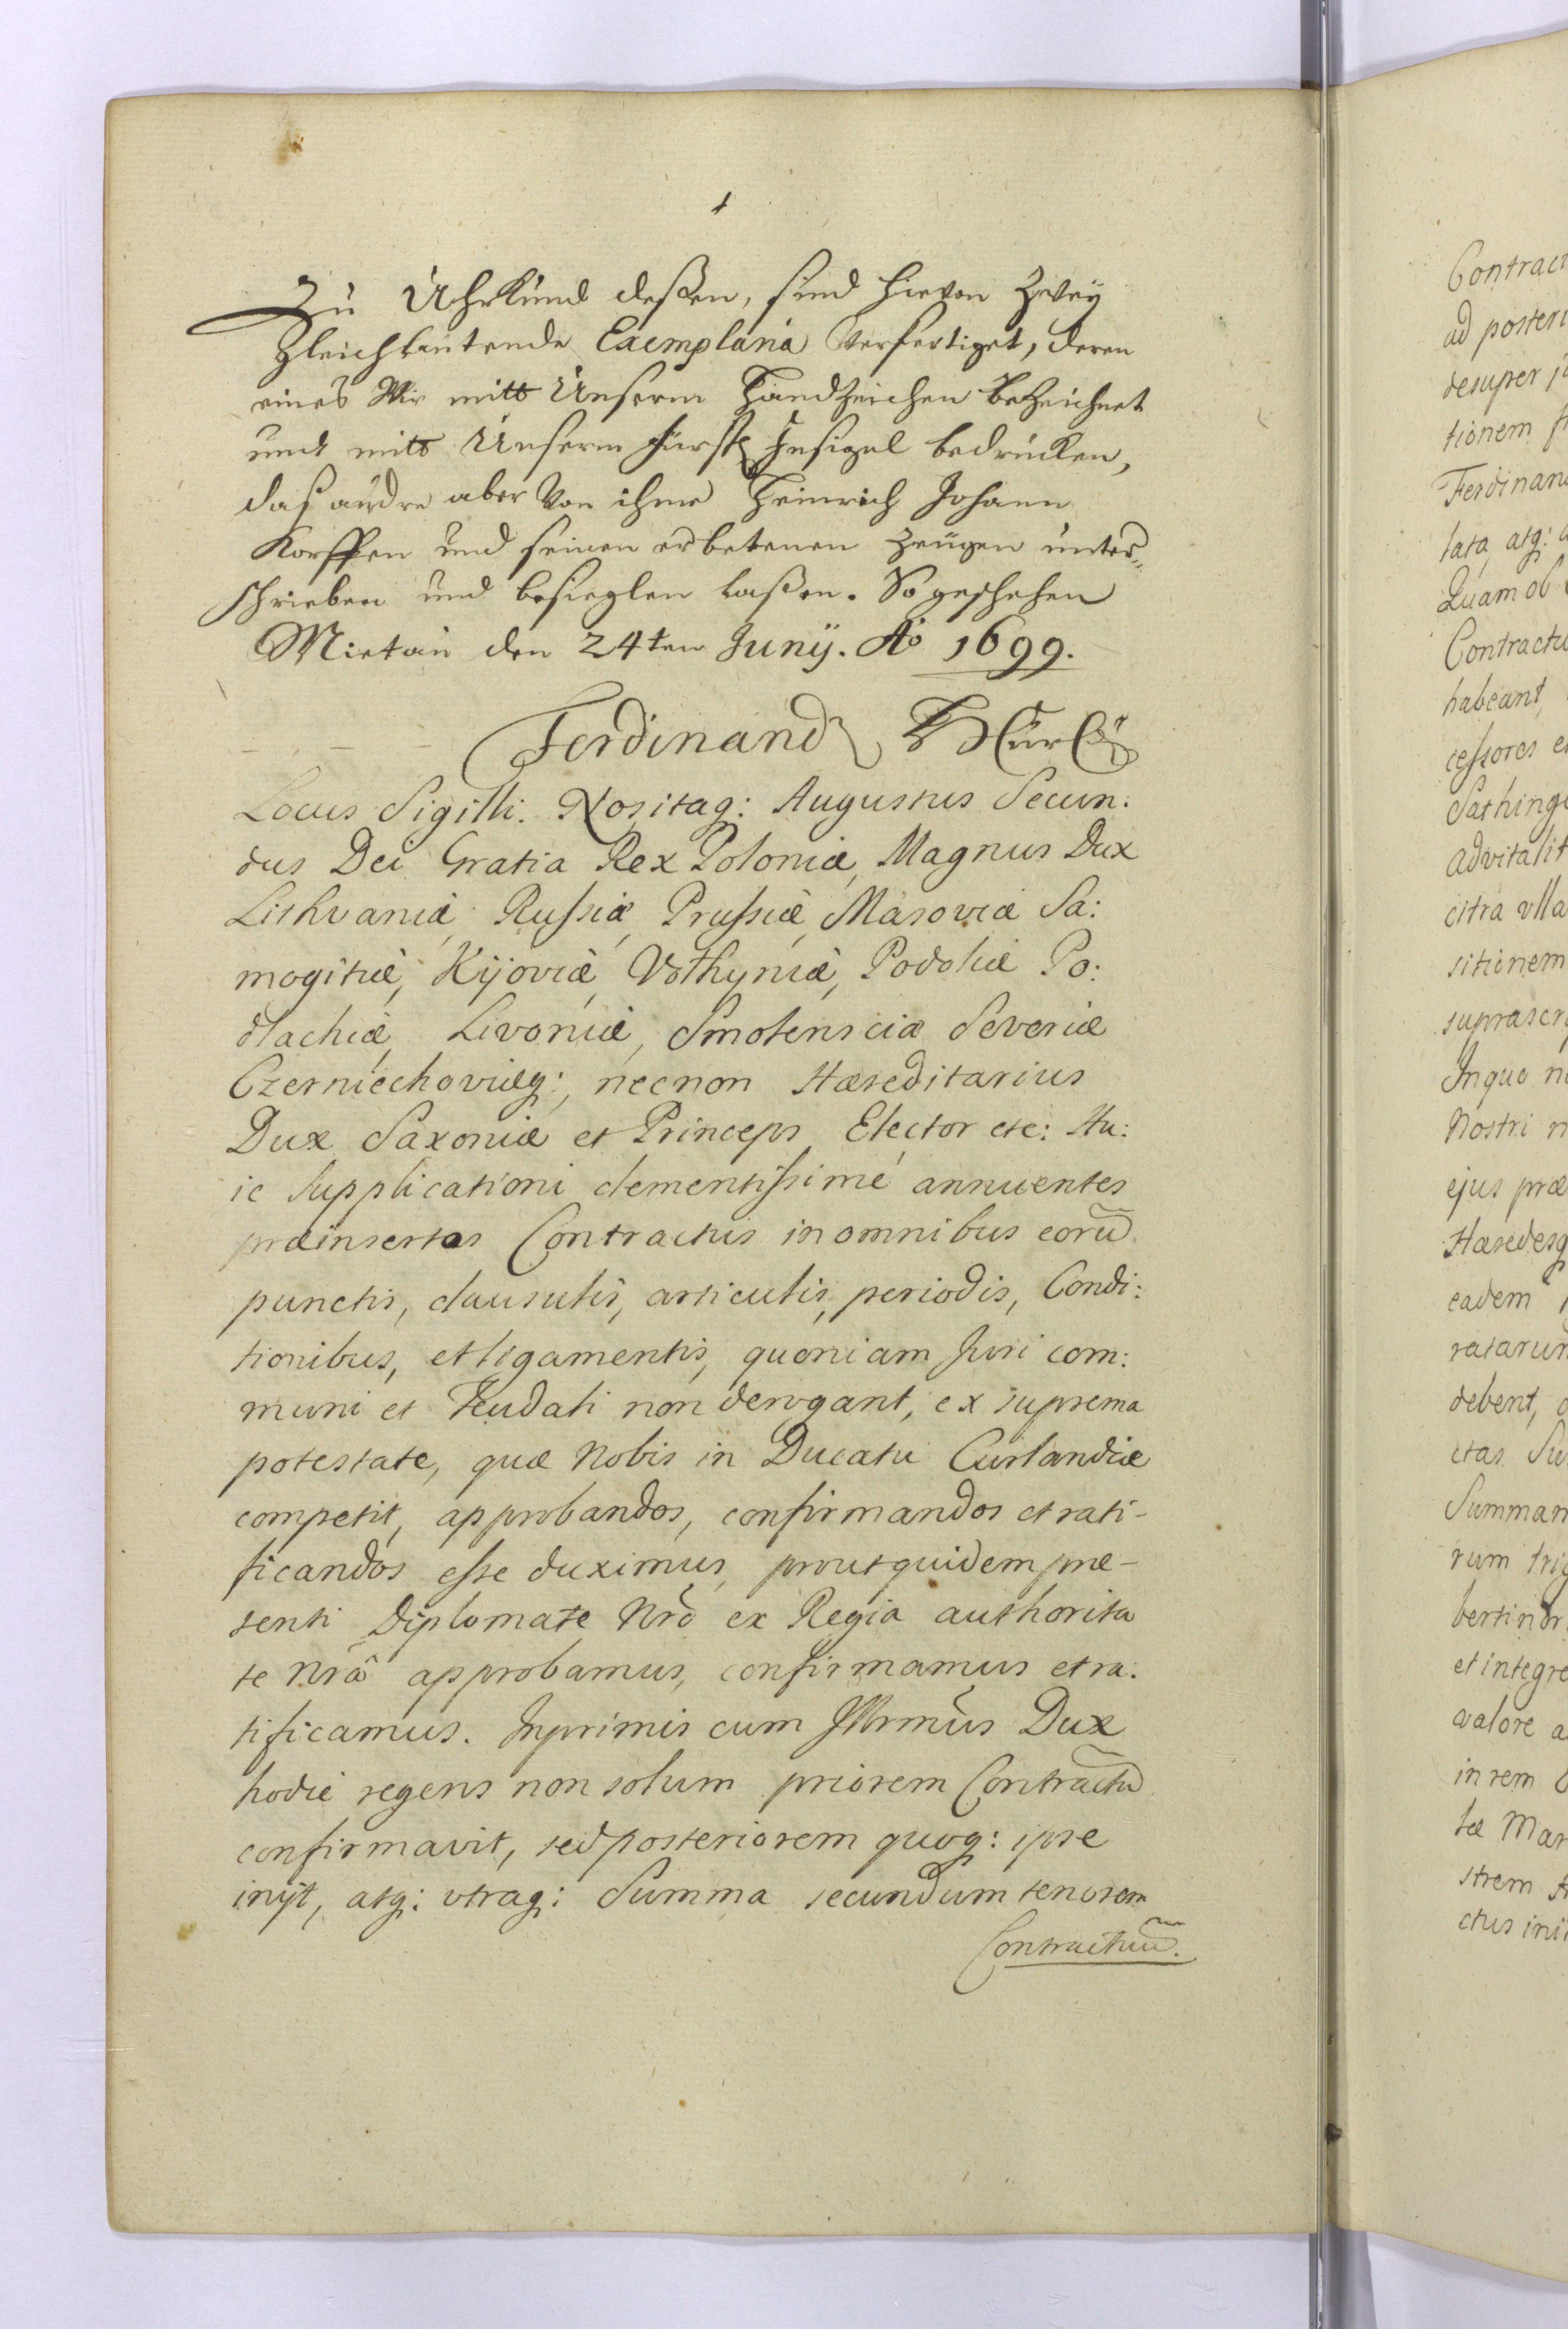 Zu Uhrkund deßen, sind hievon Zweÿ
gleichlautende Exemplaria Verfertiget, deren
eines Wir mitt Unserm Handzeichen bezeichnet
und mitt Unserm Fürstl Insigel bedrucken,
daß andre aber Von ihme Heinrich Johann
Korffen und seinen erbetenen Zeugen unter„
schrieben und besieglen laßen. So geschehen
Mietau den 24ten Junÿ. Ao 1699.
Ferdinand
Locus Sigilli. Nositaq: Augustus Secun:
dus Dei Gratia Rex Poloniæ, Magnus Dux
Lithvaniæ, Russiæ, Prussiæ, Masoviæ Sa:
mogitiæ, Kijoviæ, Volhyniæ, Podoliæ Po:
dlachiæ, Livoniæ, Smolensciæ Severiæ
Czerniechoviæq:, necnon Hæreditarius
Dux Saxoniæ et Princeps Elector etc: Hu:
ic Supplicationi clementissimé annuentes
præinsertos Contractus in omnibus eorū
punctis, clausulis, articulis, periodis, Condi:
tionibus, et ligamentis, quoniam Juri com:
muni et Feudali non derogant, ex suprema
potestate, quæ Nobis in Ducatu Curlandiæ
competit, approbandos, confirmandos et rati-
ficandos esse duximus, prout quidem præ-
senti Diplomate Nrō ex Regia authorita
te Nrâ approbamus, confirmamus et ra:
tificamus. Inprimis cum Illrmūs Dux
hodie regens non solum priorem Contractū
confirmavit, sed posteriorem quoq: ipse
inijt, atq: vtraq: Summa secundum tenorem
Contractuū.
Contract
ad posteri
desuper
tionem
Ferdinand
lata, atq:
Quam ob
Contractu
habeant,
cessores
Sathing
advitalit
citra vlla
sitionem
suprascr
In quo
Nostri
ejus præ
Hæredesq
eadem
ratarum
debent,
ctas
Summam
rum
bertinor
et integre
valore
in rem
tæ Mar
strem
ctus